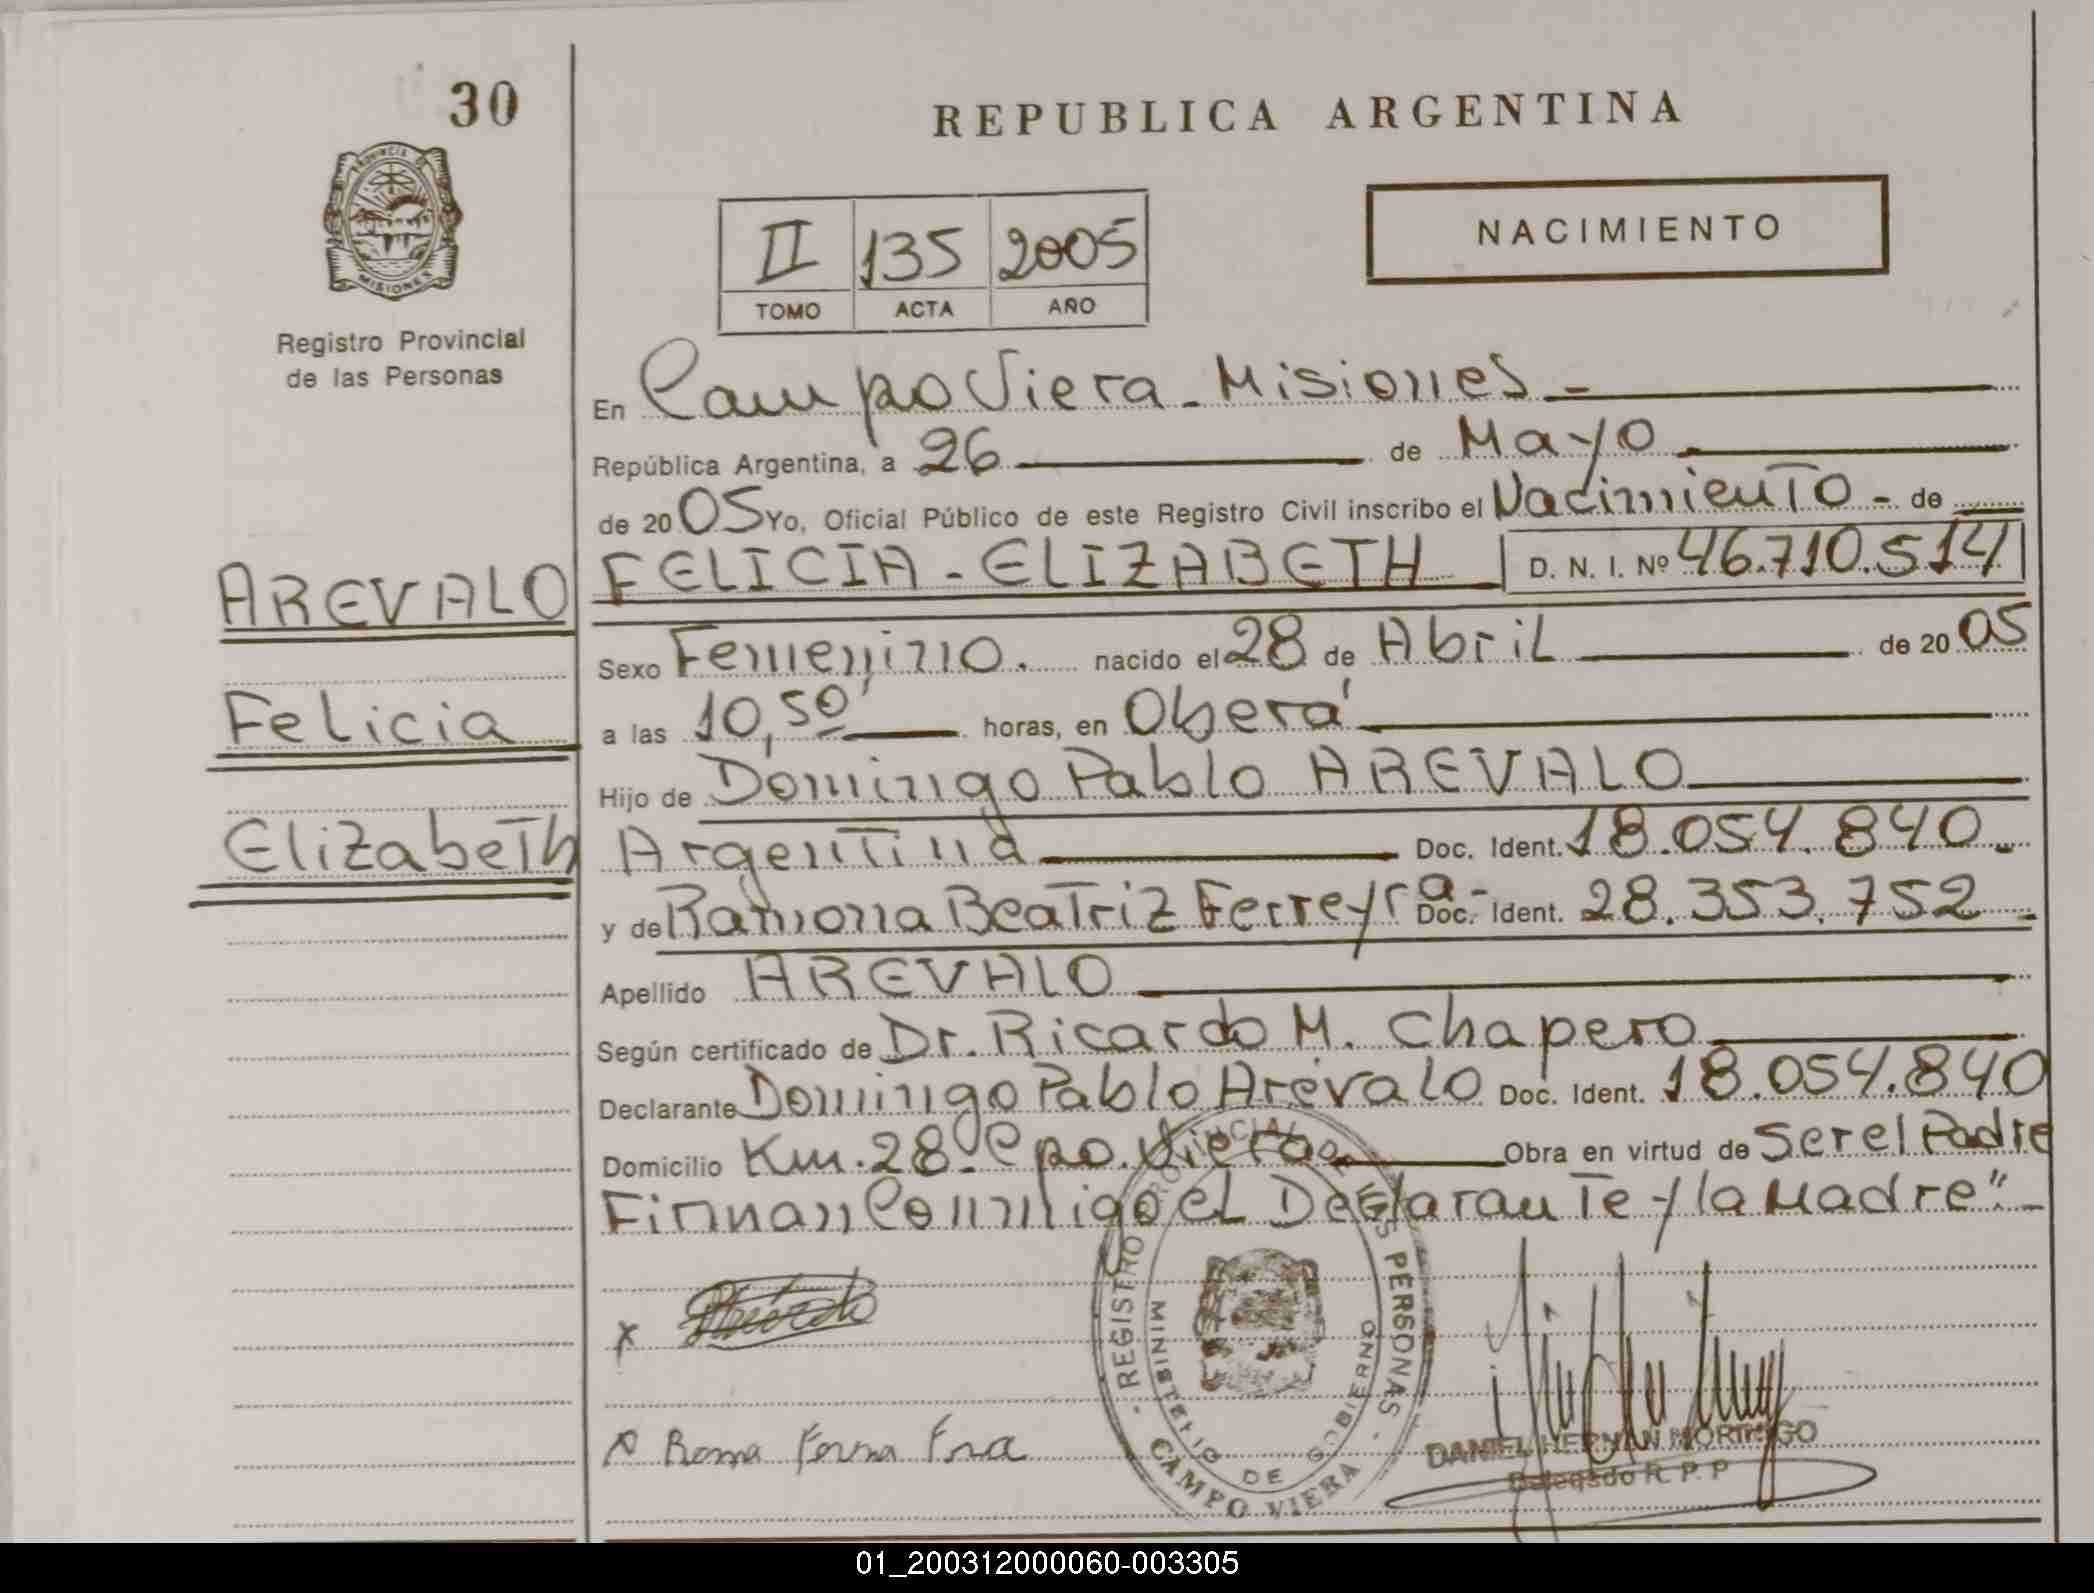 30
REPUBLICA ARGENTINA
PROVINCIA DE
MISIONES
Registro Provincial
de las Personas
NACIMIENTO
II 135 2005
TOMO ACTA AÑO
En Campo Viera - Misiones -
República Argentina, a 26 de Mayo
de 2005 Yo, Oficial Público de este Registro Civil inscribo el Nacimiento - de
AREVALO FELICIA - ELIZABETH D. N. I. Nº 46.710.514
Sexo Femenino. nacido el 28 de Abril de 2005
Felicia
a las 10,50' horas, en Oberá
Hijo de Domingo Pablo AREVALO
Elizabeth
Argentina Doc. Ident. 18.054.840.-
y de Ramona Beatriz Ferreyra - Doc. Ident. 28.353.752 -
Apellido AREVALO
Según certificado de Dr. Ricardo M. Chapero
Declarante Domingo Pablo Arévalo Doc. Ident. 18.054.840
Domicilio Km. 28 - Cpo. Viera Obra en virtud de Ser el Padre
Firman Conmigo el Declarante y la Madre".-
x
REGISTRO PROVINCIAL DE LAS PERSONAS
MINISTERIO DE GOBIERNO
CAMPO VIERA
DANIEL HERNAN
Delegado R. P. P
01_200312000060-003305